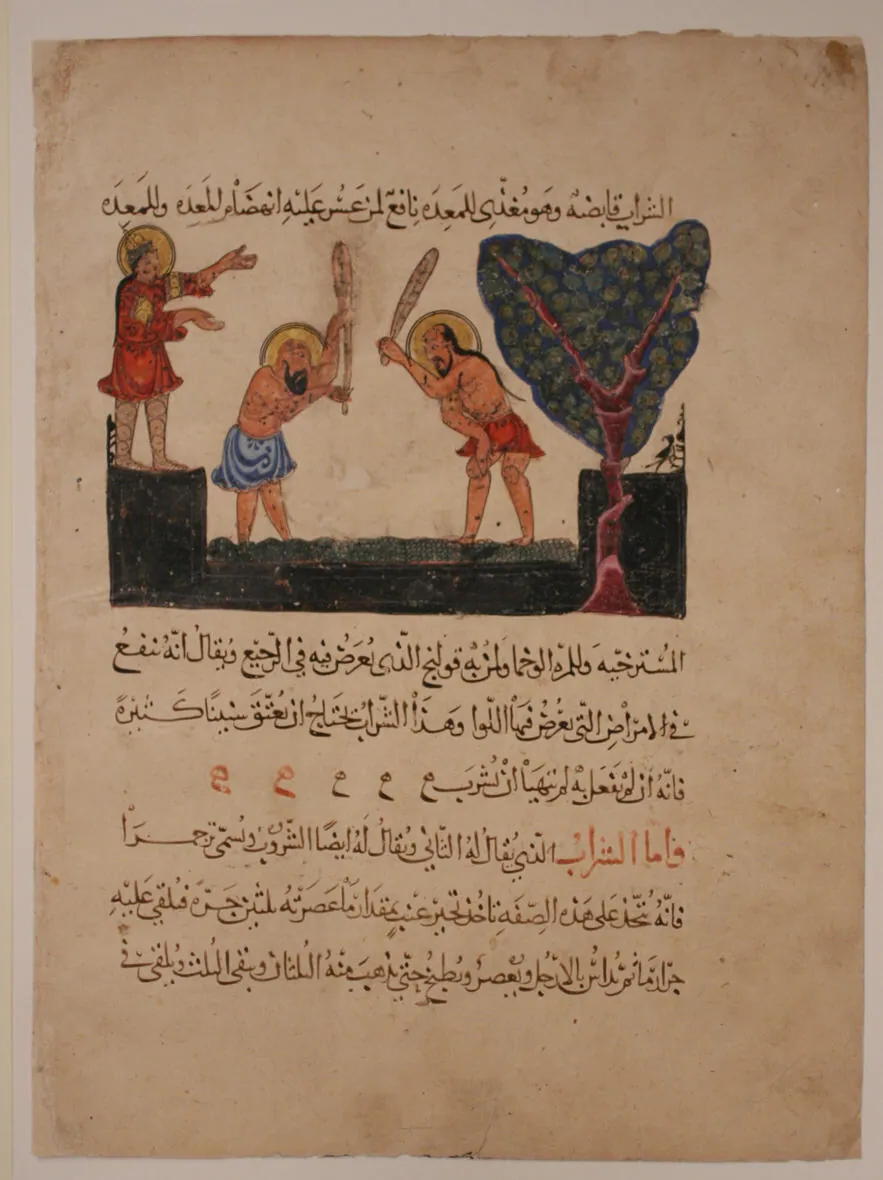 الشراب قابضة وهو مغذي للمعده نافع لمن عسر عليه انهضام للمعده وللمعده
المسترخيه وللمره الوخما ولمن به قولنج الذي يعرض فيه في الرجيع ويقال انه ينفع
في الامراض التي يعرض فيها اللوا وهذا الشراب يحتاج ان يعتق سنينا كثيرة
فانه ان لم يفعل به لم يتهيا ان يشرب
فاما الشراب الذي يقال له الثاني ويقال له ايضا الشروب ويسمى
فانه يتخذ على هذه الصفة تاخذ ثجير عنب بمقدار ما عصرته ثلثين جرة فيلقى عليه
جرار ما ثم يداس بالارجل ويعصر ويطبخ حتى يذهب منه الثلثان ويبقى الثلث ويلقى في